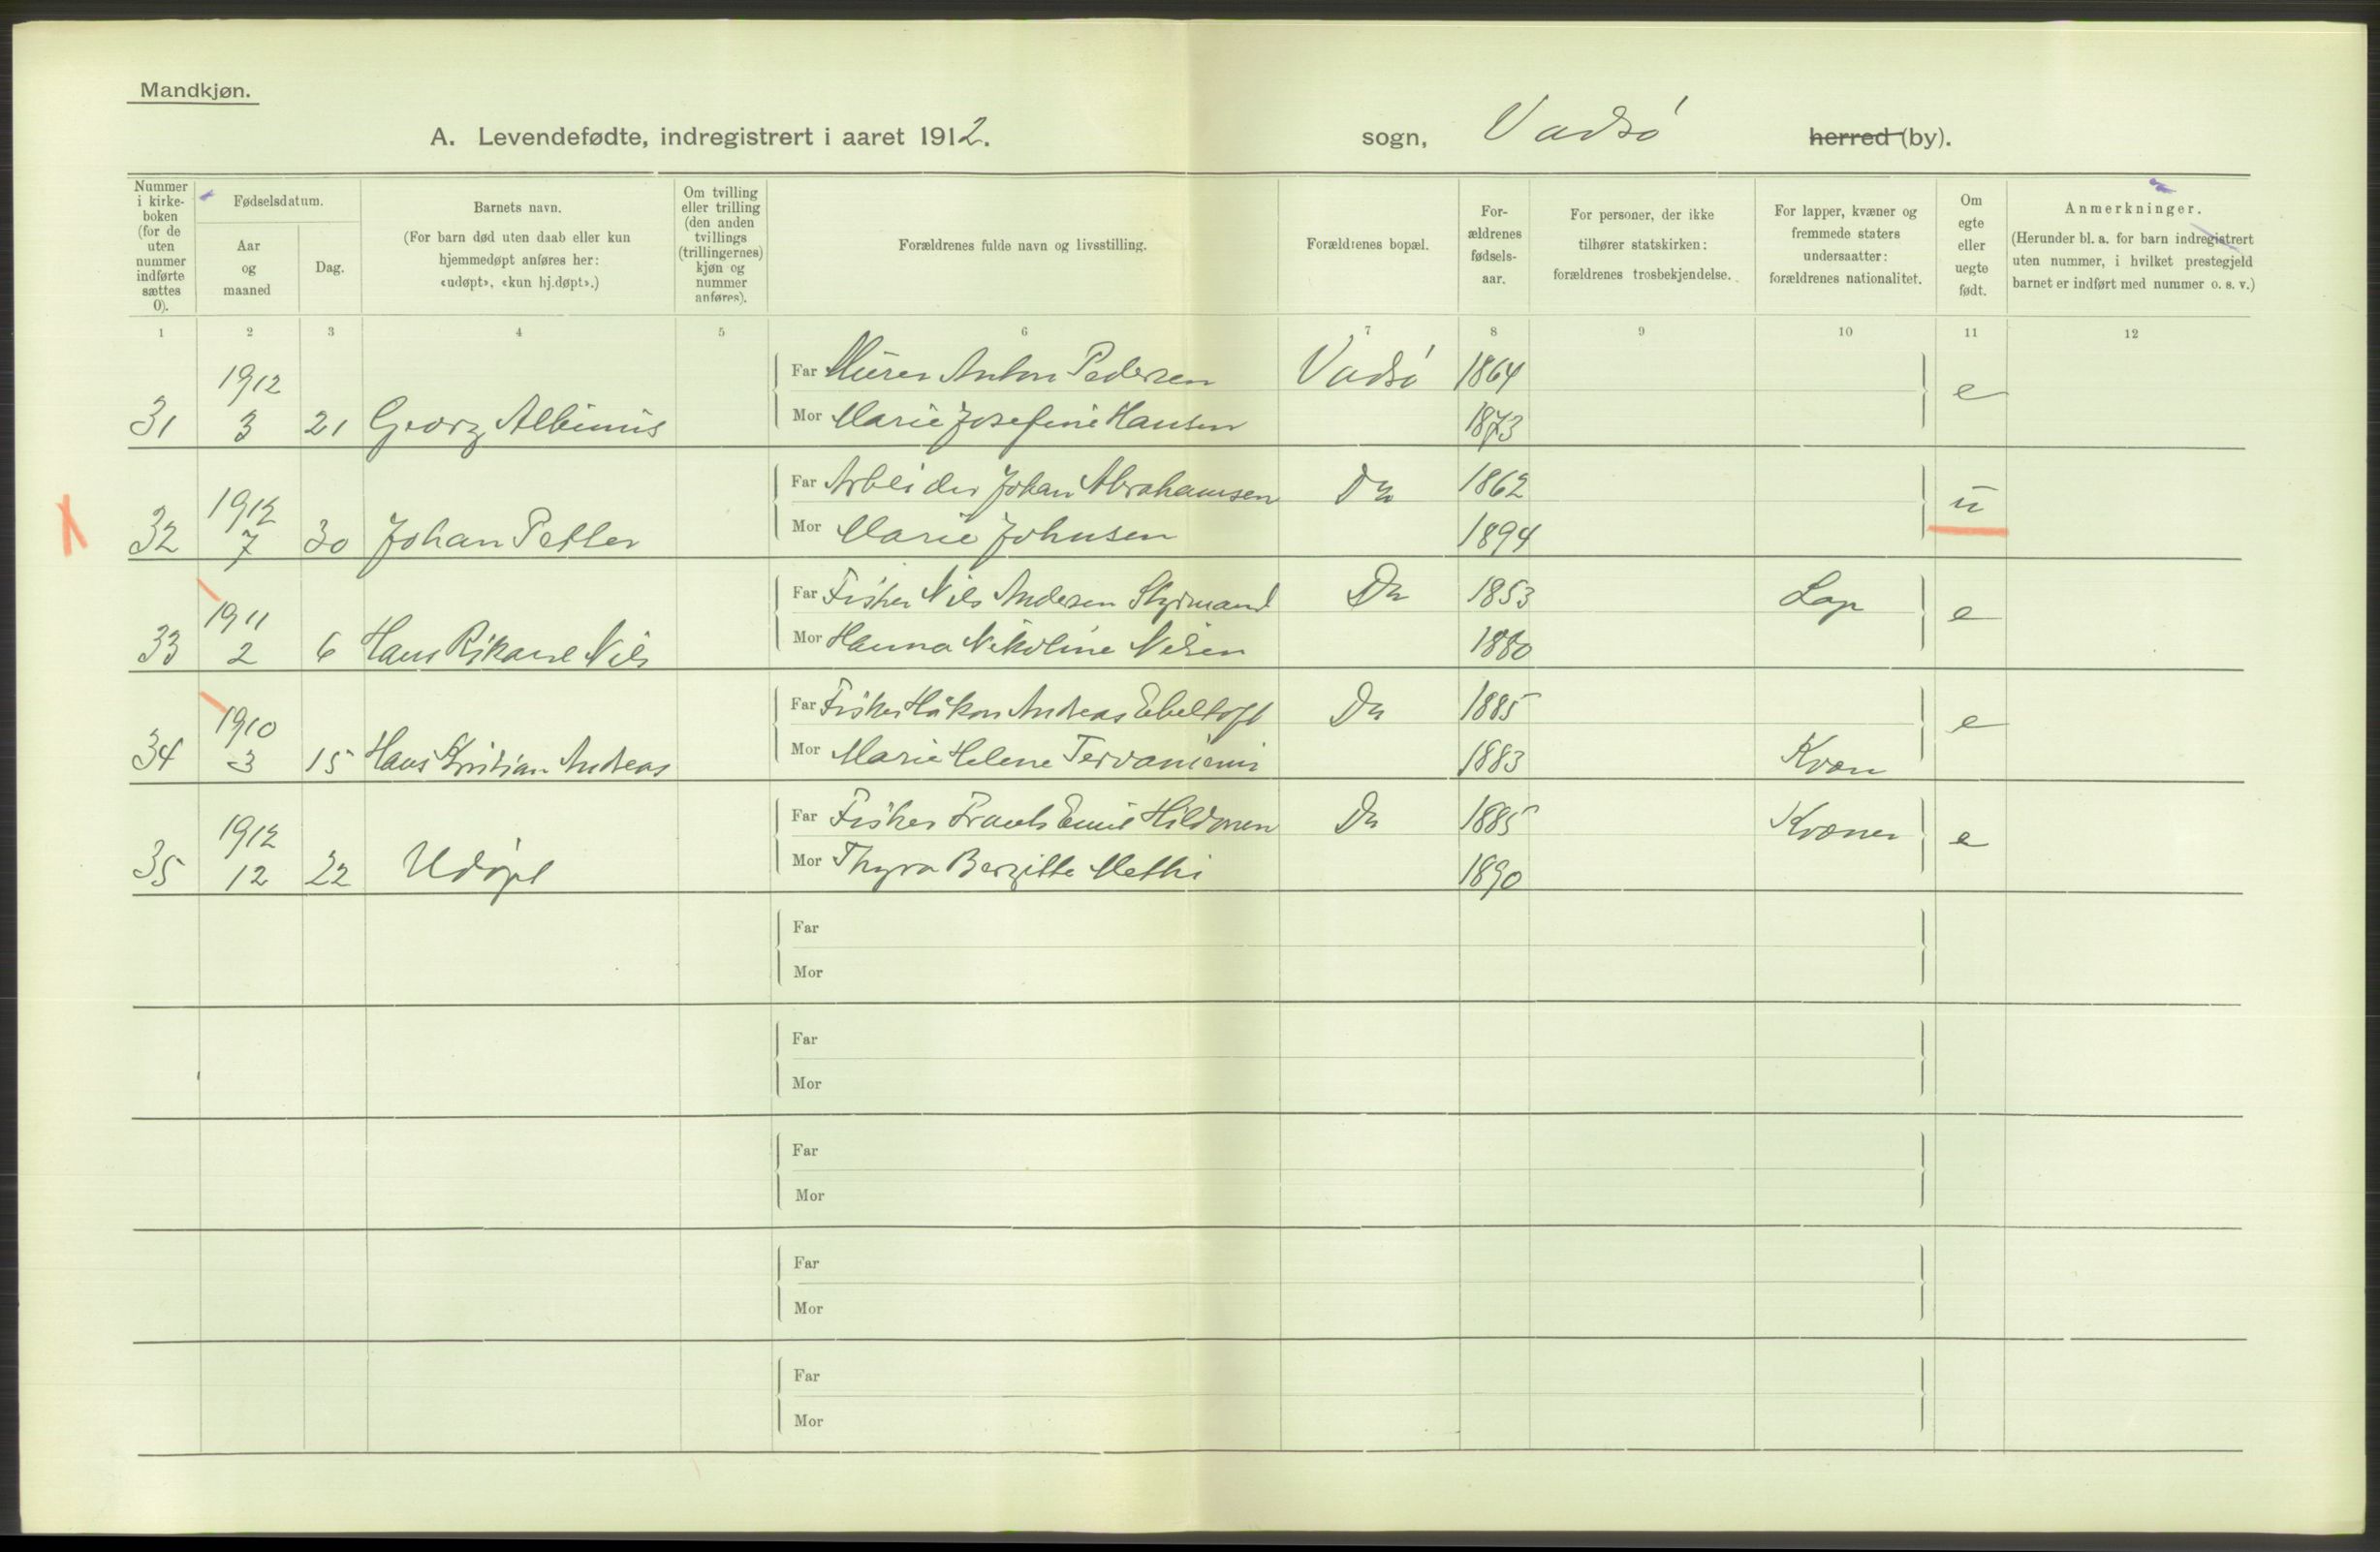 Mandkjøn.
A. Levendefødte, indregistrert i aaret 1912. sogn, Vadsø herred (by).
Nummer i kirke-boken (for de uten nummer indførte sættes 0).
Fødselsdatum.
Aar og maaned
Dag.
Barnets navn.
(For barn død uten daab eller kun hjemmedøpt anføres her: «udøpt», «kun hj.døpt».)
Om tvilling eller trilling (den anden tvillings (trillingernes) kjøn og nummer anføres).
Forældrenes fulde navn og livsstilling.
Forældrenes bopæl.
For-ældrenes fødsels-aar.
For personer, der ikke tilhører statskirken: forældrenes trosbekjendelse.
For lapper, kvæner og fremmede staters undersaatter: forældrenes nationalitet.
Om egte eller uegte født.
Anmerkninger.
(Herunder bl. a. for barn indregistrert uten nummer, i hvilket prestegjeld barnet er indført med nummer o. s. v.)
1 2 3 4 5 6 7 8 9 10 11 12
1912 Far Murer Anton Pedersen Vadsø 1864 e
31 3 21 Georg Albinius Mor Marie Josefine Hansen 1873
1912 Far Arbeider Johan Abrahamsen Do 1862 u
32 7 30 Johan Petter Mor Marie Johnsen 1894
1911 Far Fisker Nils Andersen Styrmand Do 1853 Lap e
33 2 6 Hans Rikard Nils Mor Hanna Nikoline Nilsen 1880
1910 Far Fisker Håkon Andreas Ebeltoft Do 1885 e
34 3 15 Hans Kristian Andreas Mor Marie Helene Tervaniemi 1883 Kvæn
1912 Far Fisker Frants Emil Hildonen Do 1885 Kvæner e
35 12 22 Udøpt Mor Thyra Bergitte Methi 1890
Far
Mor
Far
Mor
Far
Mor
Far
Mor
Far
Mor